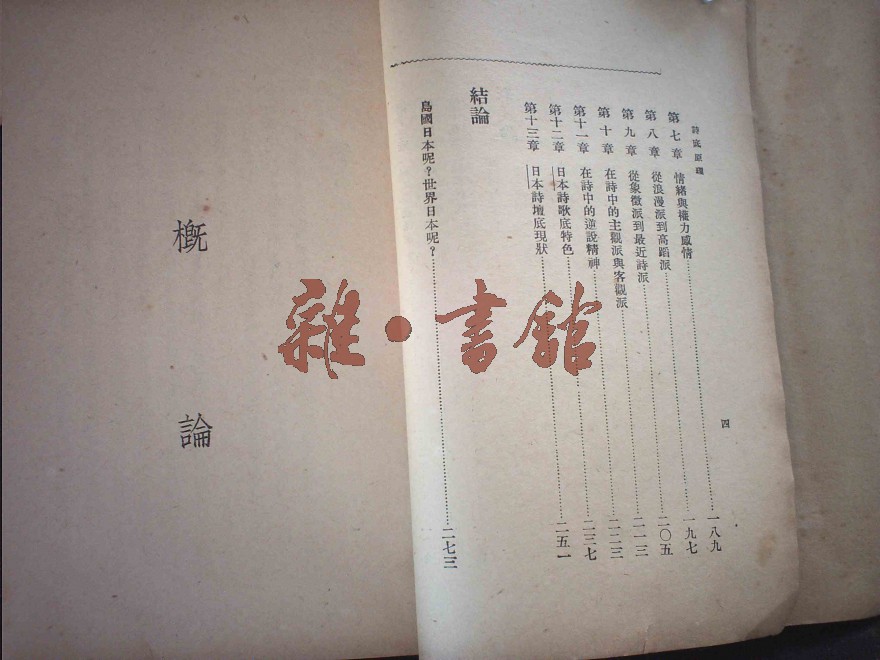 詩底原理
四
第七章　情緒與權力感情……一八九
第八章　從浪漫派到高蹈派……一九七
第九章　從象徵派到最近詩派……二〇五
第十章　在詩中的主觀派與客觀派……二一三
第十一章　在詩中的逆說精神……二二三
第十二章　日本詩歌底特色……二三七
第十三章　日本詩壇底現狀……二五一
結論
島國日本呢？世界日本呢？……二七三
概論
雜・書館